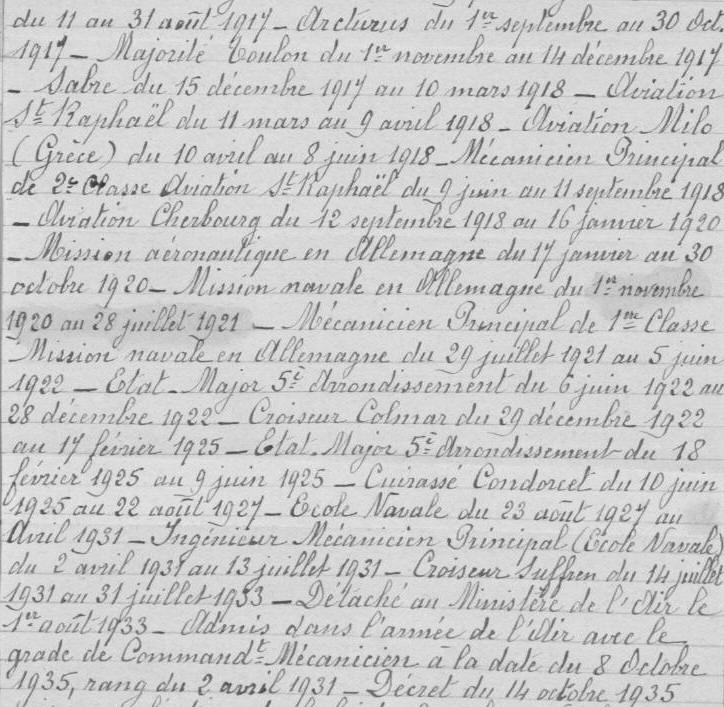 du 11 au 31 août 1917 - Arcturus du 1er septembre au 30 Oct.
1917 - Majorité Toulon du 1er novembre au 14 décembre 1917
- Sabre du 15 décembre 1917 au 10 mars 1918 - Aviation
St Raphaël du 11 mars au 9 avril 1918 - Aviation Milo
(Grèce) du 10 avril au 8 juin 1918 - Mécanicien Principal
de 2e Classe Aviation St Raphaël du 9 juin au 11 septembre 1918
- Aviation Cherbourg du 12 septembre 1918 au 16 janvier 1920
- Mission aéronautique en Allemagne du 17 janvier au 30
octobre 1920 - Mission navale en Allemagne du 1er novembre
1920 au 28 juillet 1921 - Mécanicien Principal de 1ère Classe
Mission navale en Allemagne du 29 juillet 1921 au 5 juin
1922 - Etat-Major 5è Arrondissement du 6 juin 1922 au
28 décembre 1922 - Croiseur Colmar du 29 décembre 1922
au 17 février 1925 - Etat-Major 5è Arrondissement du 18
février 1925 au 9 juin 1925 - Cuirassé Condorcet du 10 juin
1925 au 22 août 1927 - Ecole Navale du 23 août 1927 au
Avril 1931 - Ingénieur Mécanicien Principal (Ecole Navale)
du 2 avril 1931 au 13 juillet 1931 - Croiseur Suffren du 14 juillet
1931 au 31 juillet 1933 - Détaché au Ministère de l'Air le
1er août 1933 - Admis dans l'armée de l'Air avec le
grade de Commandt Mécanicien à la date du 8 Octobre
1935, rang du 2 avril 1931 - Décret du 14 octobre 1935